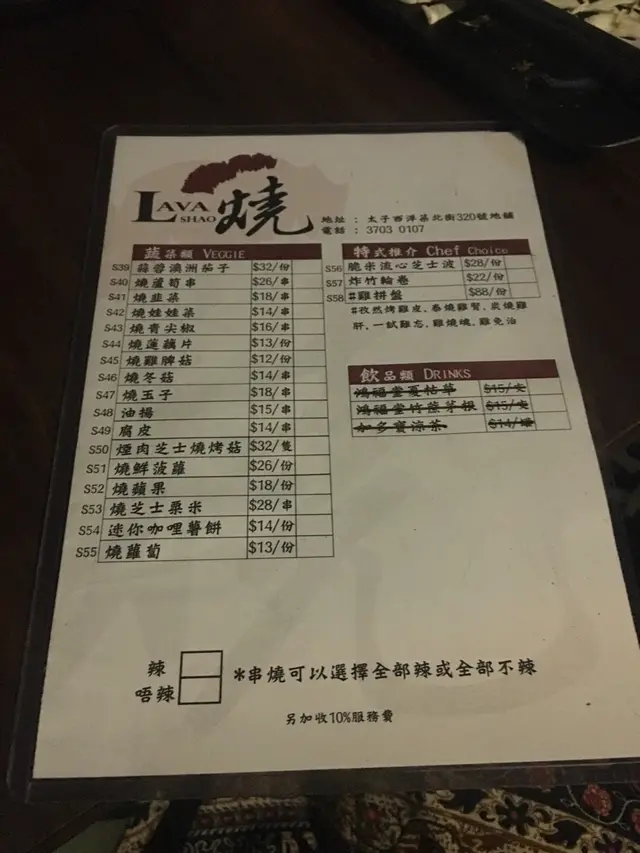 LAVA
SHAO
燒
地址 : 太子西洋菜北街320號地舖
電話 : 3703 0107
蔬菜類 VEGGIE
S39 蒜蓉澳洲茄子 $32/份
S40 燒蘆荀串 $26/串
S41 燒韭菜 $18/串
S42 燒娃娃菜 $14/串
S43 燒青尖椒 $16/串
S44 燒蓮藕片 $13/份
S45 燒雞脾菇 $12/份
S46 燒冬菇 $14/串
S47 燒玉子 $18/串
S48 油揚 $15/串
S49 腐皮 $14/串
S50 煙肉芝士燒烤菇 $32/隻
S51 燒鮮菠蘿 $26/份
S52 燒蘋果 $18/份
S53 燒芝士粟米 $28/串
S54 迷你咖哩薯餅 $14/份
S55 燒蘿蔔 $13/份
特式推介 Chef Choice
S56 脆米流心芝士波 $28/份
S57 炸竹輪卷 $22/份
S58 #雞拼盤 $88/份
#孜然烤雞皮、泰燒雞腎、炭燒雞
肝、一試難忘、雞燒魂、雞免治
飲品類 DRINKS
鴻福堂夏枯草 $15/支
鴻福堂竹蔗茅根 $15/支
加多寶涼茶 $14/罐
辣
唔辣
*串燒可以選擇全部辣或全部不辣
另加收10%服務費